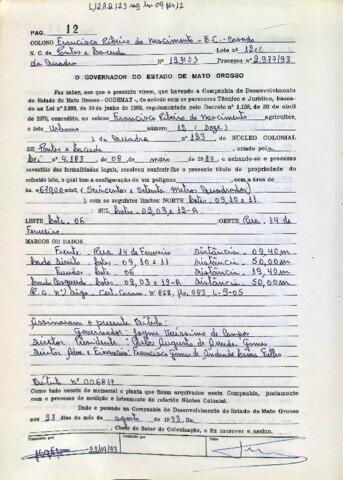 PAG. 12
COLONO Francisco Ribeiro do Nascimento - B.C. - Casado
N. C. de Pontes e Lacerda Lote nº 12
da Quadra Nº 123 Processo nº 2.977/93
O GOVERNADOR DO ESTADO DE MATO GROSSO
Faz saber, aos que a presente virem, que havendo a Companhia de Desenvolvimento
do Estado de Mato Grosso - CODEMAT -, de acordo com os pareceres Técnico e Jurídico, basea-
do na Lei nº de 10 de junho de 1969, regulamentada pelo Decreto nº 1.138, de 30 de abril
de 1970, concedido, no colono Francisco Ribeiro do Nascimento agricultor,
o lote Urbano nº 12 (Doze)
da Quadra nº 123 DO NÚCLEO COLONIAL
DE Pontes e Lacerda, criado pela
Lei nº 4.183 de 08 de maio de 1980, e achando-se o processo
revestido das formalidades legais, resolveu conferir-lhe o presente título de propriedade do
referido lote, o qual tem a configuração de um polígono com a área de
670,00 (Seiscentos e Setenta Metros Quadrados)
, com os seguintes limites: NORTE Lotes 09, 10 e 11
; SUL Lotes 02, 03 e 12-A
LESTE Lote 06 ; OESTE Rua 14 de
Fevereiro.
MARCOS OU DADOS
Frente - Rua 14 de Fevereiro distância - 09,40m
Lado Direito - Lotes 09, 10 e 11 distância - 50,00m
Fundos - Lote 06 distância - 19,40m
Lado Esquerdo - Lotes 02, 03 e 12-A distância - 50,00m
Cert. Casam. Nº 868, fls. 083, L-B-05
Assinaram o presente título:
Governador: Jayme Veríssimo de Campos
Diretor Presidente: Augusto de Arruda Gomes
Título nº 006817
Como tudo consta do memorial e planta que ficam arquivados nesta Companhia, juntamente
com o processo de medição e loteamento do referido Núcleo Colonial.
Dado e passado na Companhia de Desenvolvimento do Estado de Mato Grosso
aos 23 dias do mês de agosto de 1993. Eu,
, Chefe do Setor de Colonização, o fiz escrever e assino.
23/09/93